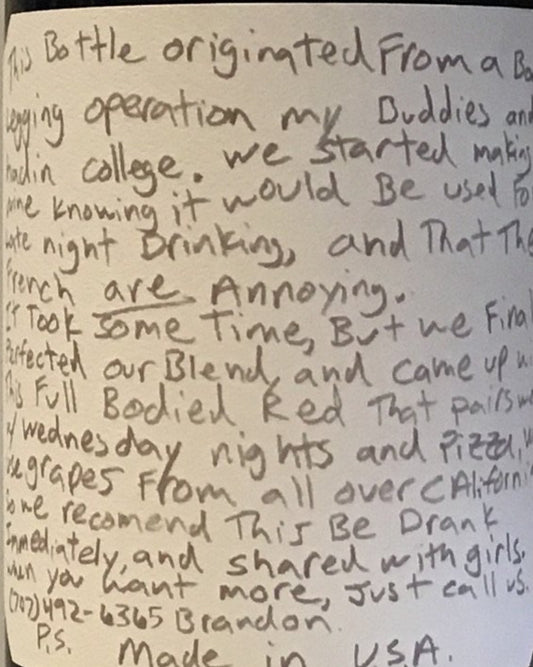 This Bottle originated From a Bo
legging operation my Buddies and
had in college. we started making
wine knowing it would Be used For
late night Drinking, and That The
French are Annoying.
It Took some Time, But we Final
Perfected our Blend, and came up wi
This Full Bodied Red That pairs we
w/ wednesday nights and Pizza, w
use grapes From all over CAliforni
so we recomend This Be Drank
Immediately, and shared with girls.
when you want more, Just call us.
(707)492-6365 Brandon.
P.S.
Made in USA.